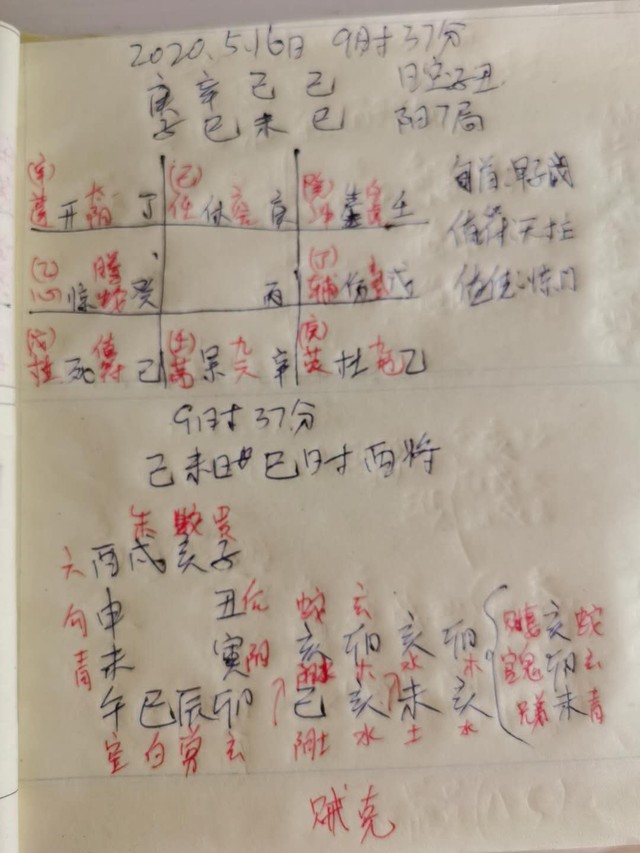 2020.5.16日 9时37分
庚 辛 己 己 日空子丑
子 巳 未 巳 阳7局
旬首:甲子戊
值符:天柱
值使:惊门
开 太阴 丁
任 休 庚
生 壬
(乙) 心 惊 腾蛇 癸
丙
(丁) 辅 伤 戊
(戊) 柱 死 值符 己
(壬) 景 九天 辛
杜 九地 乙
9时37分
己未日 巳时 酉将
朱 蛇 贵
六 酉 戌 亥 子
勾 申 丑 后
青 未 寅 阴
午 巳 辰 卯
空 白 常 玄
蛇 玄
亥 卯 亥 卯
水 木 水 木
己 亥 未 亥
阴土 水 土 水
亥 蛇
官鬼 卯 玄
兄弟 未 青
贼克